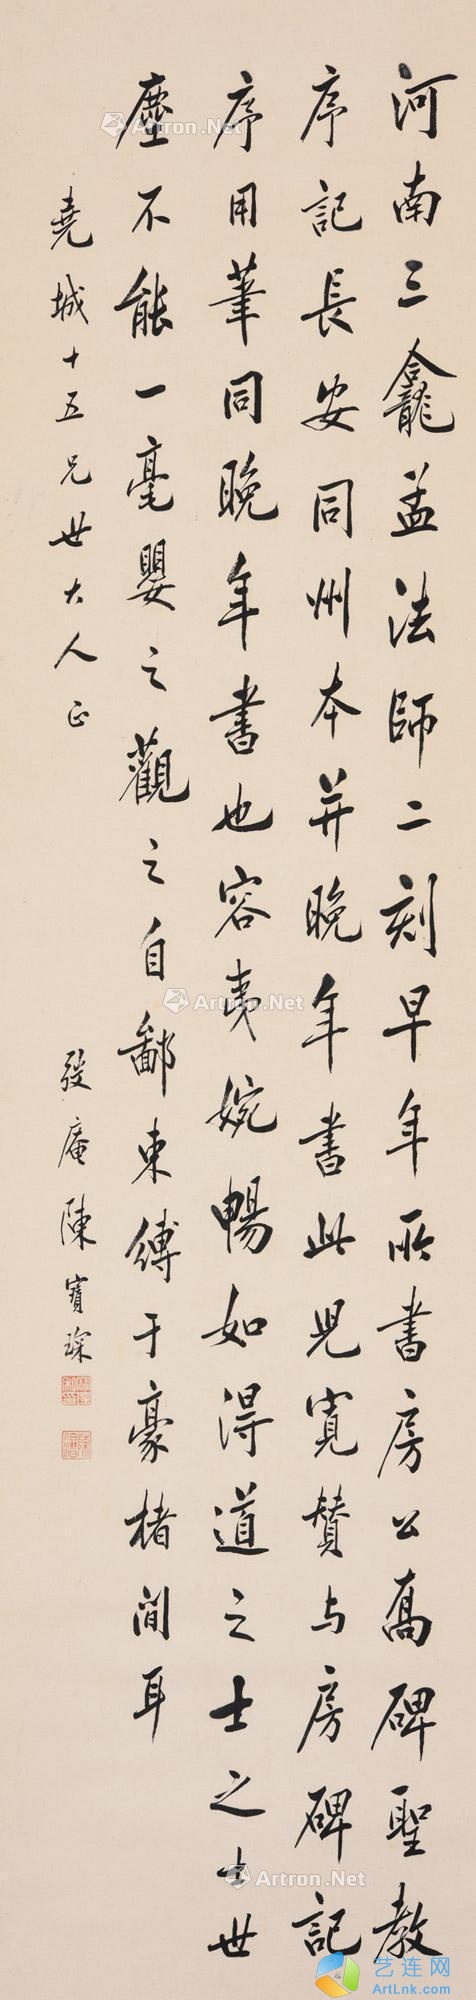 河南三龕孟法師二刻早年所書房公高碑聖教
序記長安同州本并晚年書此兒寬贊与房碑記
序用筆同晚年書也容夷婉暢如得道之士之士世
塵不能一毫嬰之觀之自鄙束縛于豪楮間耳
堯城十五兄世大人正
弢庵陳寶琛
Artron.Net
Artron.Net
Artron.Net
Artron.Net
Artron.Net
艺连网
ArtLnk.com